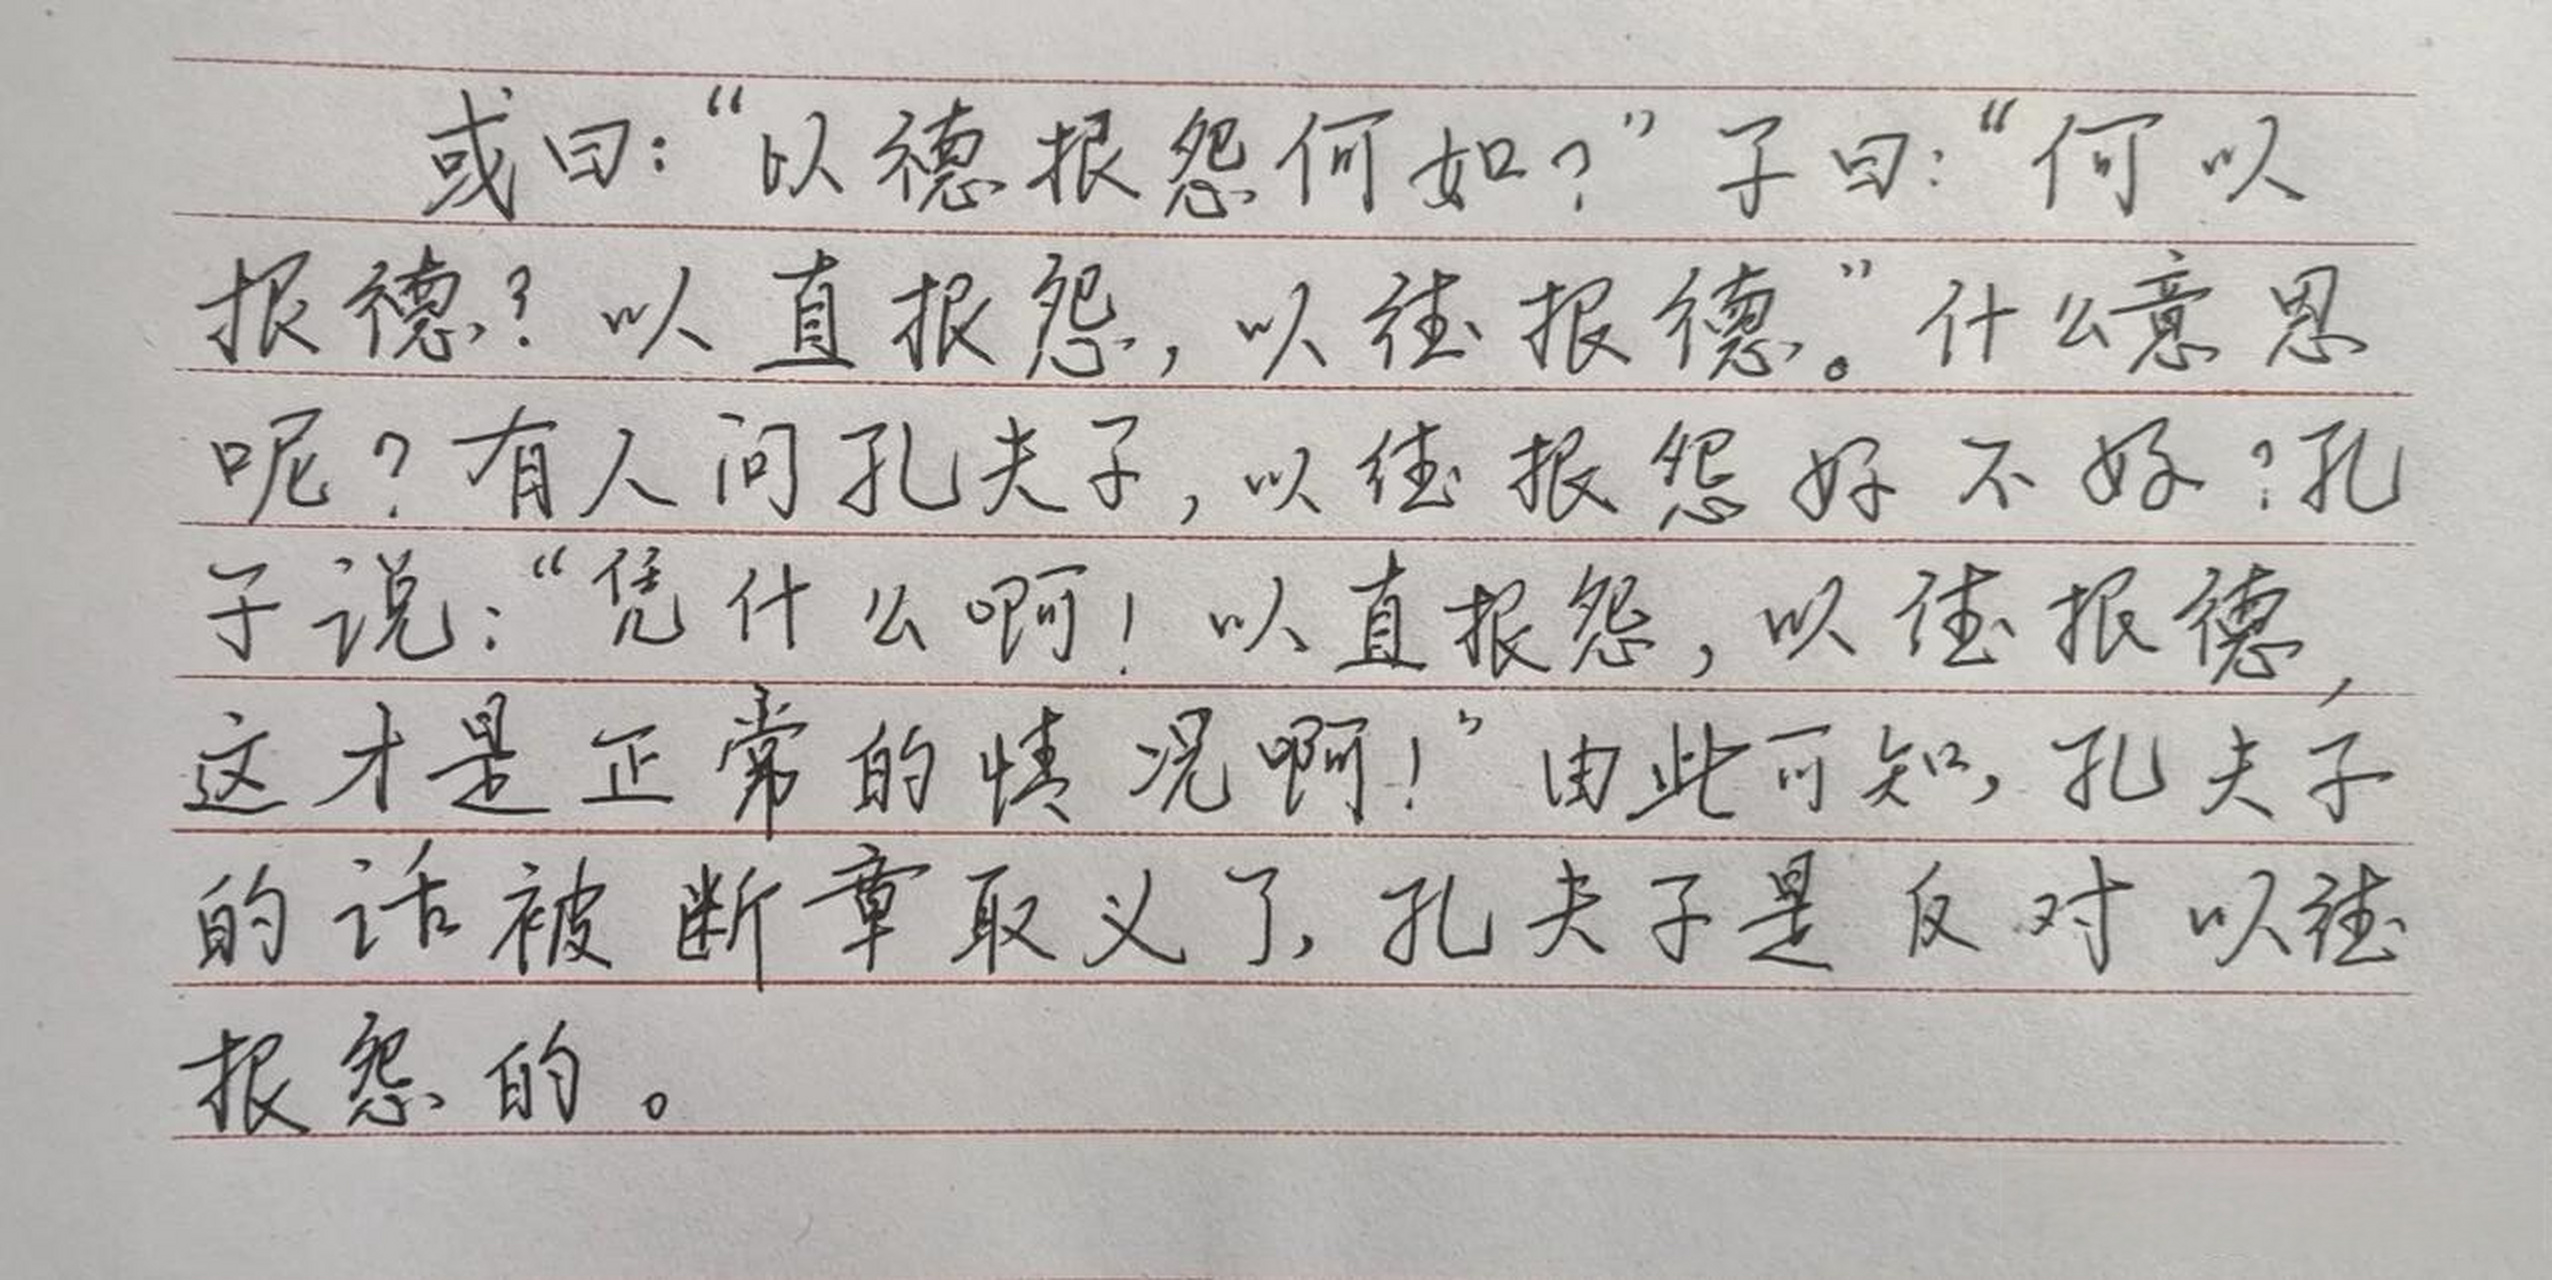 或曰：“以德报怨何如？”子曰：“何以
报德？以直报怨，以德报德。”什么意思
呢？有人问孔夫子，以德报怨好不好？孔
子说：“凭什么啊！以直报怨，以德报德，
这才是正常的情况啊！”由此可知，孔夫子
的话被断章取义了，孔夫子是反对以德
报怨的。